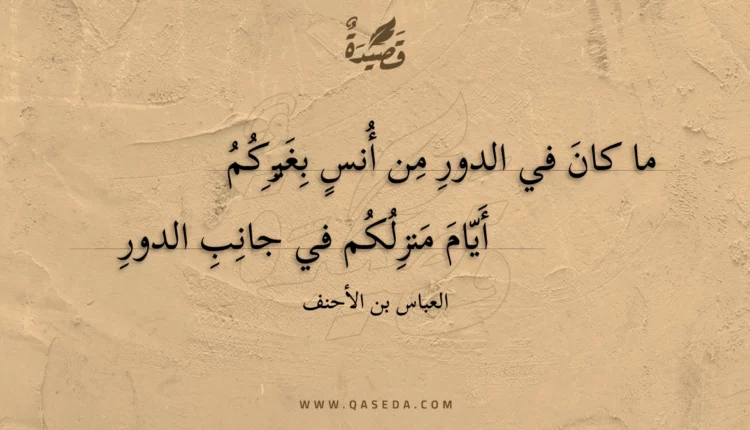 قَصِيدَةٌ
ما كانَ في الدورِ مِن أُنسٍ بِغَيرِكُمُ
أَيّامَ مَنزِلُكُم في جانِبِ الدورِ
العباس بن الأحنف
WWW.QASEDA.COM